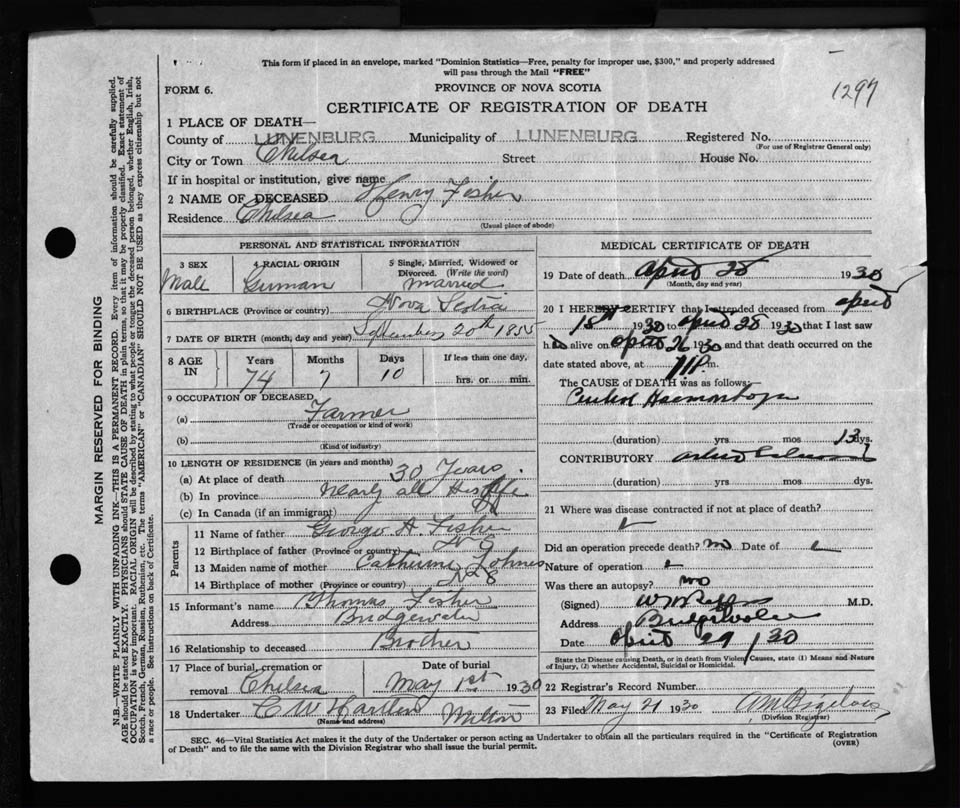 This form if placed in an envelope, marked "Dominion Statistics—Free, penalty for improper use, $300," and properly addressed
will pass through the Mail "FREE"
1297
FORM 6.
PROVINCE OF NOVA SCOTIA
CERTIFICATE OF REGISTRATION OF DEATH
1 PLACE OF DEATH—
County of LUNENBURG Municipality of LUNENBURG Registered No.
(For use of Registrar General only)
City or Town Chelsea Street House No.
If in hospital or institution, give name
2 NAME OF DECEASED Henry Fisher
Residence Chelsea
(Usual place of abode)
PERSONAL AND STATISTICAL INFORMATION
3 SEX 4 RACIAL ORIGIN 5 Single, Married, Widowed or
Divorced. (Write the word)
Male German married
6 BIRTHPLACE (Province or country) Nova Scotia
7 DATE OF BIRTH (month, day and year) September 20th 1855
8 AGE IN Years Months Days If less than one day,
74 7 10 hrs. or min.
9 OCCUPATION OF DECEASED
(a) Farmer
(Trade or occupation or kind of work)
(b)
(Kind of industry)
10 LENGTH OF RESIDENCE (in years and months)
(a) At place of death 30 Years
(b) In province nearly all His life
(c) In Canada (if an immigrant)
Parents
11 Name of father George A Fisher
12 Birthplace of father (Province or country) N S
13 Maiden name of mother Catherine
14 Birthplace of mother (Province or country) N S
15 Informant's name Thomas Fisher
Address Bridgewater
16 Relationship to deceased Brother
17 Place of burial, cremation or Date of burial
removal Chelsea May 1st 1930
18 Undertaker C W Milton
(Name and address)
MEDICAL CERTIFICATE OF DEATH
19 Date of death April 28 1930
(Month, day and year)
20 I HEREBY CERTIFY that I attended deceased from April
18th 1930 to April 28 1930 that I last saw
h alive on April 26 1930 and that death occurred on the
date stated above, at 11 P. m.
The CAUSE of DEATH was as follows:
Haemorrhage
(duration) yrs mos 13 dys.
CONTRIBUTORY
(duration) yrs. mos. dys.
21 Where was disease contracted if not at place of death?
Did an operation precede death? no Date of
Nature of operation
Was there an autopsy? no
(Signed) M.D.
Address Bridgewater
Date April 29 / 30
State the Disease causing Death, or in death from Violent Causes, state (1) Means and Nature
of Injury, (2) whether Accidental, Suicidal or Homicidal.
22 Registrar's Record Number
23 Filed May 21 1930 A M Bigelow
(Division Registrar)
SEC. 46—Vital Statistics Act makes it the duty of the Undertaker or person acting as Undertaker to obtain all the particulars required in the "Certificate of Registration
of Death" and to file the same with the Division Registrar who shall issue the burial permit.
(OVER)
MARGIN RESERVED FOR BINDING
N.B.—WRITE PLAINLY WITH UNFADING INK—THIS IS A PERMANENT RECORD. Every item of information should be carefully supplied.
AGE should be stated EXACTLY. PHYSICIANS should STATE CAUSE OF DEATH in plain terms, so that it may be properly classified. Exact statement of
OCCUPATION is very important. RACIAL ORIGIN will be described by stating to what people or tongue the deceased person belonged, whether English, Irish,
Scotch, French, German, Russian, Ruthenian, etc. The terms "AMERICAN" or "CANADIAN" SHOULD NOT BE USED as they express citizenship but not
a race or people. See instructions on back of Certificate.